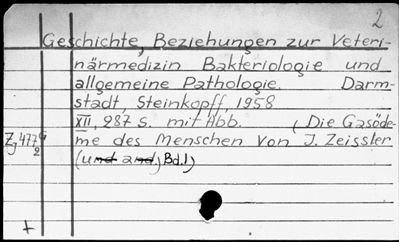 2
Geschichte, Beziehungen zur Veteri-
närmedizin Bakteriologie und
allgemeine Pathologie. Darm-
stadt, Steinkopff, 1958
XII, 287 S. mit Abb. (Die Gasöde-
me des Menschen von J. Zeissler
(und and.) Bd.1)